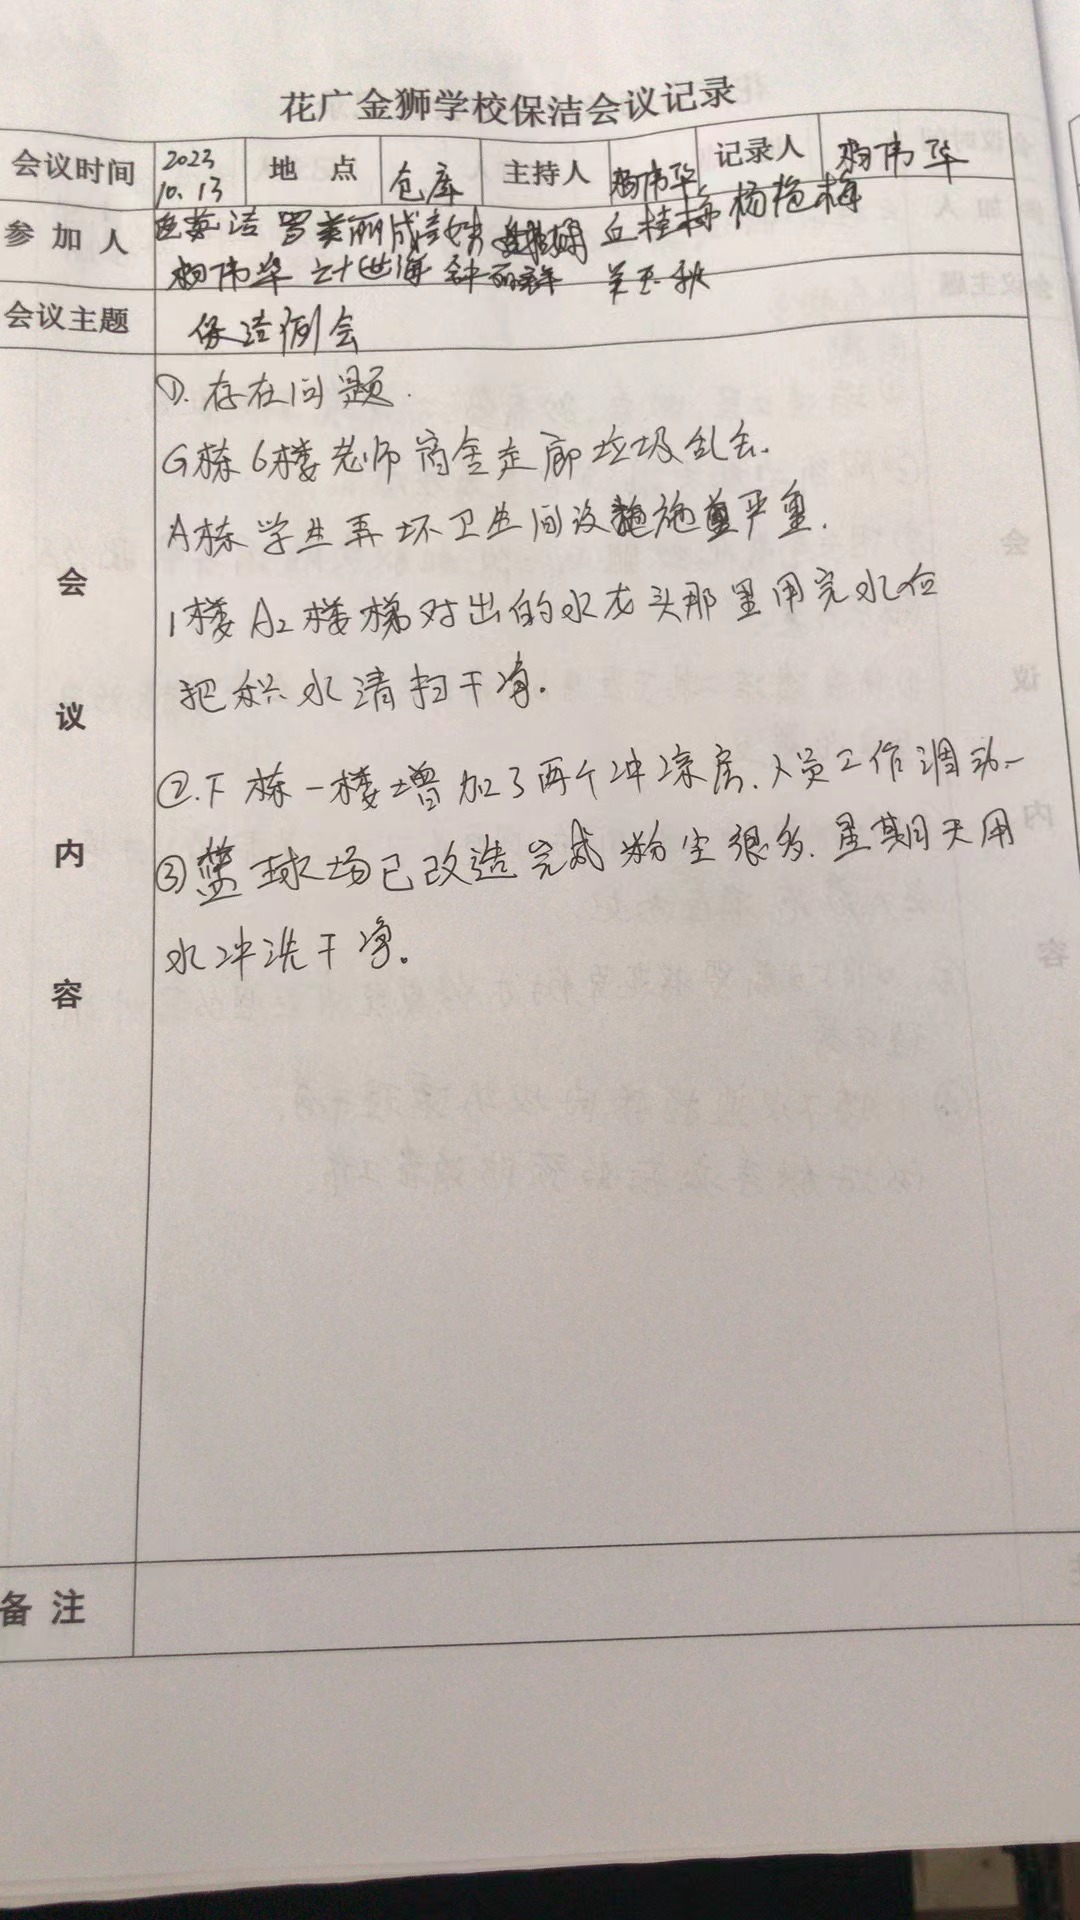 花广金狮学校保洁会议记录
会议时间 2023 10.13 地点 仓库 主持人 杨伟华 记录人 杨伟华
参加人 英洁 罗美丽 丘桂梅 杨艳梅
杨伟华 叶世海 钟丽群 关玉秋
会议主题 保洁例会
会议内容
①.存在问题.
G栋6楼老师宿舍走廊垃圾乱丢.
A栋学生弄坏卫生间设施严重.
1楼A2楼梯对出的水龙头那里用完水后
把积水清扫干净.
②.F栋一楼增加了两个冲凉房.人员工作调动
③篮球场已改造完成粉尘很多.星期天用
水冲洗干净。
备注